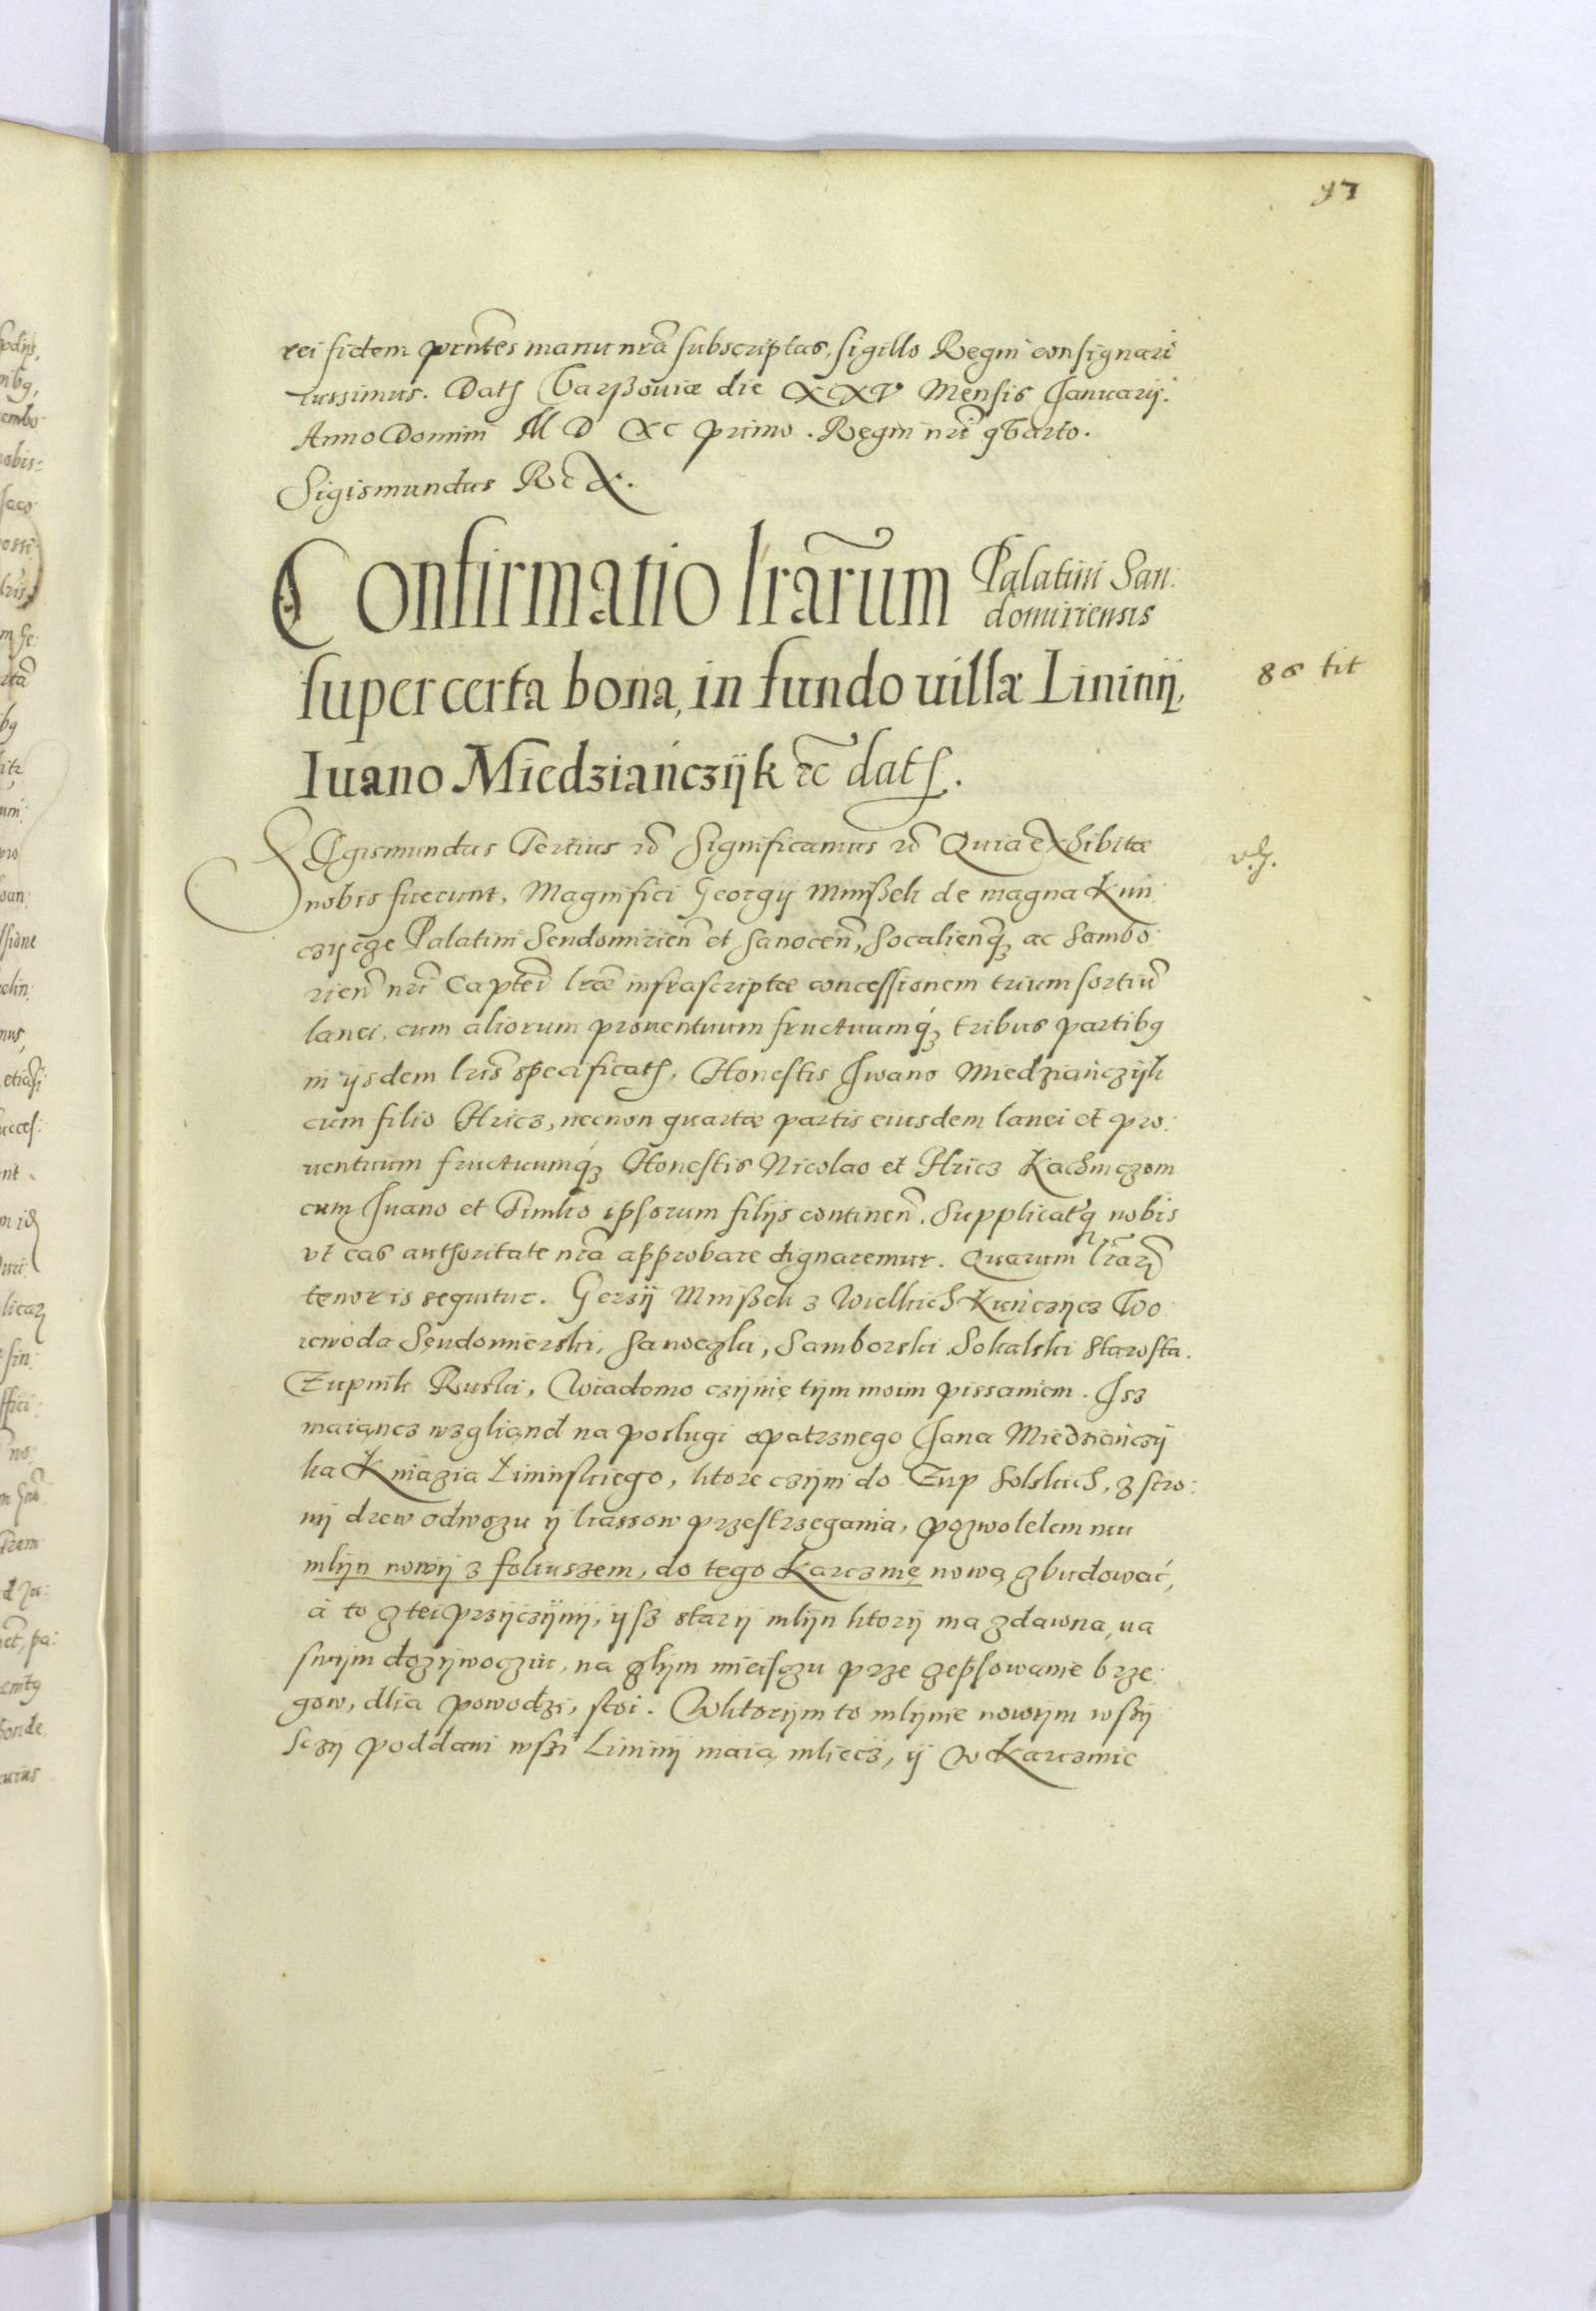 97
rei fidem pntes manu nra subscriptas, sigillo Regni consignari
iussimus. Dat Varßouiæ die XXV Mensis Januarij.
Anno Domini M D XC primo. Regni nri qVarto.
Sigismundus Rex.
Confirmatio lrarum Palatini San:
domiriensis
super certa bona, in fundo uillæ Lininÿ,
86 tit
Iuano Miedziańczÿk etc dat.
Sigismundus Tertius etc Significamus etc Quia exhibitæ
nobis fuerunt, Magnifici Georgij Mnißek de magna Kun:
czycze Palatini Sendomirien et Sanocen, Socalienq ac Sambo:
rien nri Captei lræ infrascriptæ concessionem trium sortiu
lanei, cum aliorum prouentuum fructuumq tribus partibq
in ijsdem lris specificat, Honestis Jwano Miedziańczÿk
cum filio Hricz, necnon quartæ partis eiusdem lanei et pro:
uentuum fructuumq Honestis Nicolao et Hricz Kachniczom
cum Juano et Timko ipsorum filijs continen. Supplicatq nobis
vt eas authoritate nra approbare dignaremur. Quarum lrar
tenor is sequitur. Gerzÿ Mnißek z Wielkich Kuńczÿcz Wo
iewoda Sendomierski, Sanoczki, Samborski Sokalski Starosta.
Zupnik Ruski, Wiadomo czÿnię tÿm moim pissaniem. Jsz
maiąncz wzgliąnd na posługi opatrznego Jana Miedziańczÿ
ka Kniazia Lininskiego, ktore czÿni do Zup Solskich, z stro:
nÿ drew odwozu ÿ liassow przestrzegania, pozwolełem mu
młÿn nowÿ z foluszem, do tego Karczmę nową zbudować,
a to z tei przÿczÿnÿ, ÿsz starÿ młÿn ktorÿ ma zdawna, na
swÿm dozÿwoczių, na złÿm mieisczu prze zepsowanie brze:
gow, dlia powodzi, stoi. W ktorÿm to młÿnie nowÿm wszÿ
sczÿ poddani wszi Lininÿ maią mliecz, ÿ w Karczmie